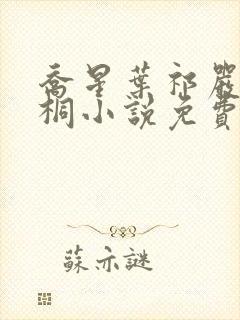 喬星葉祁嚴
桐小說免費
蘇亦謎